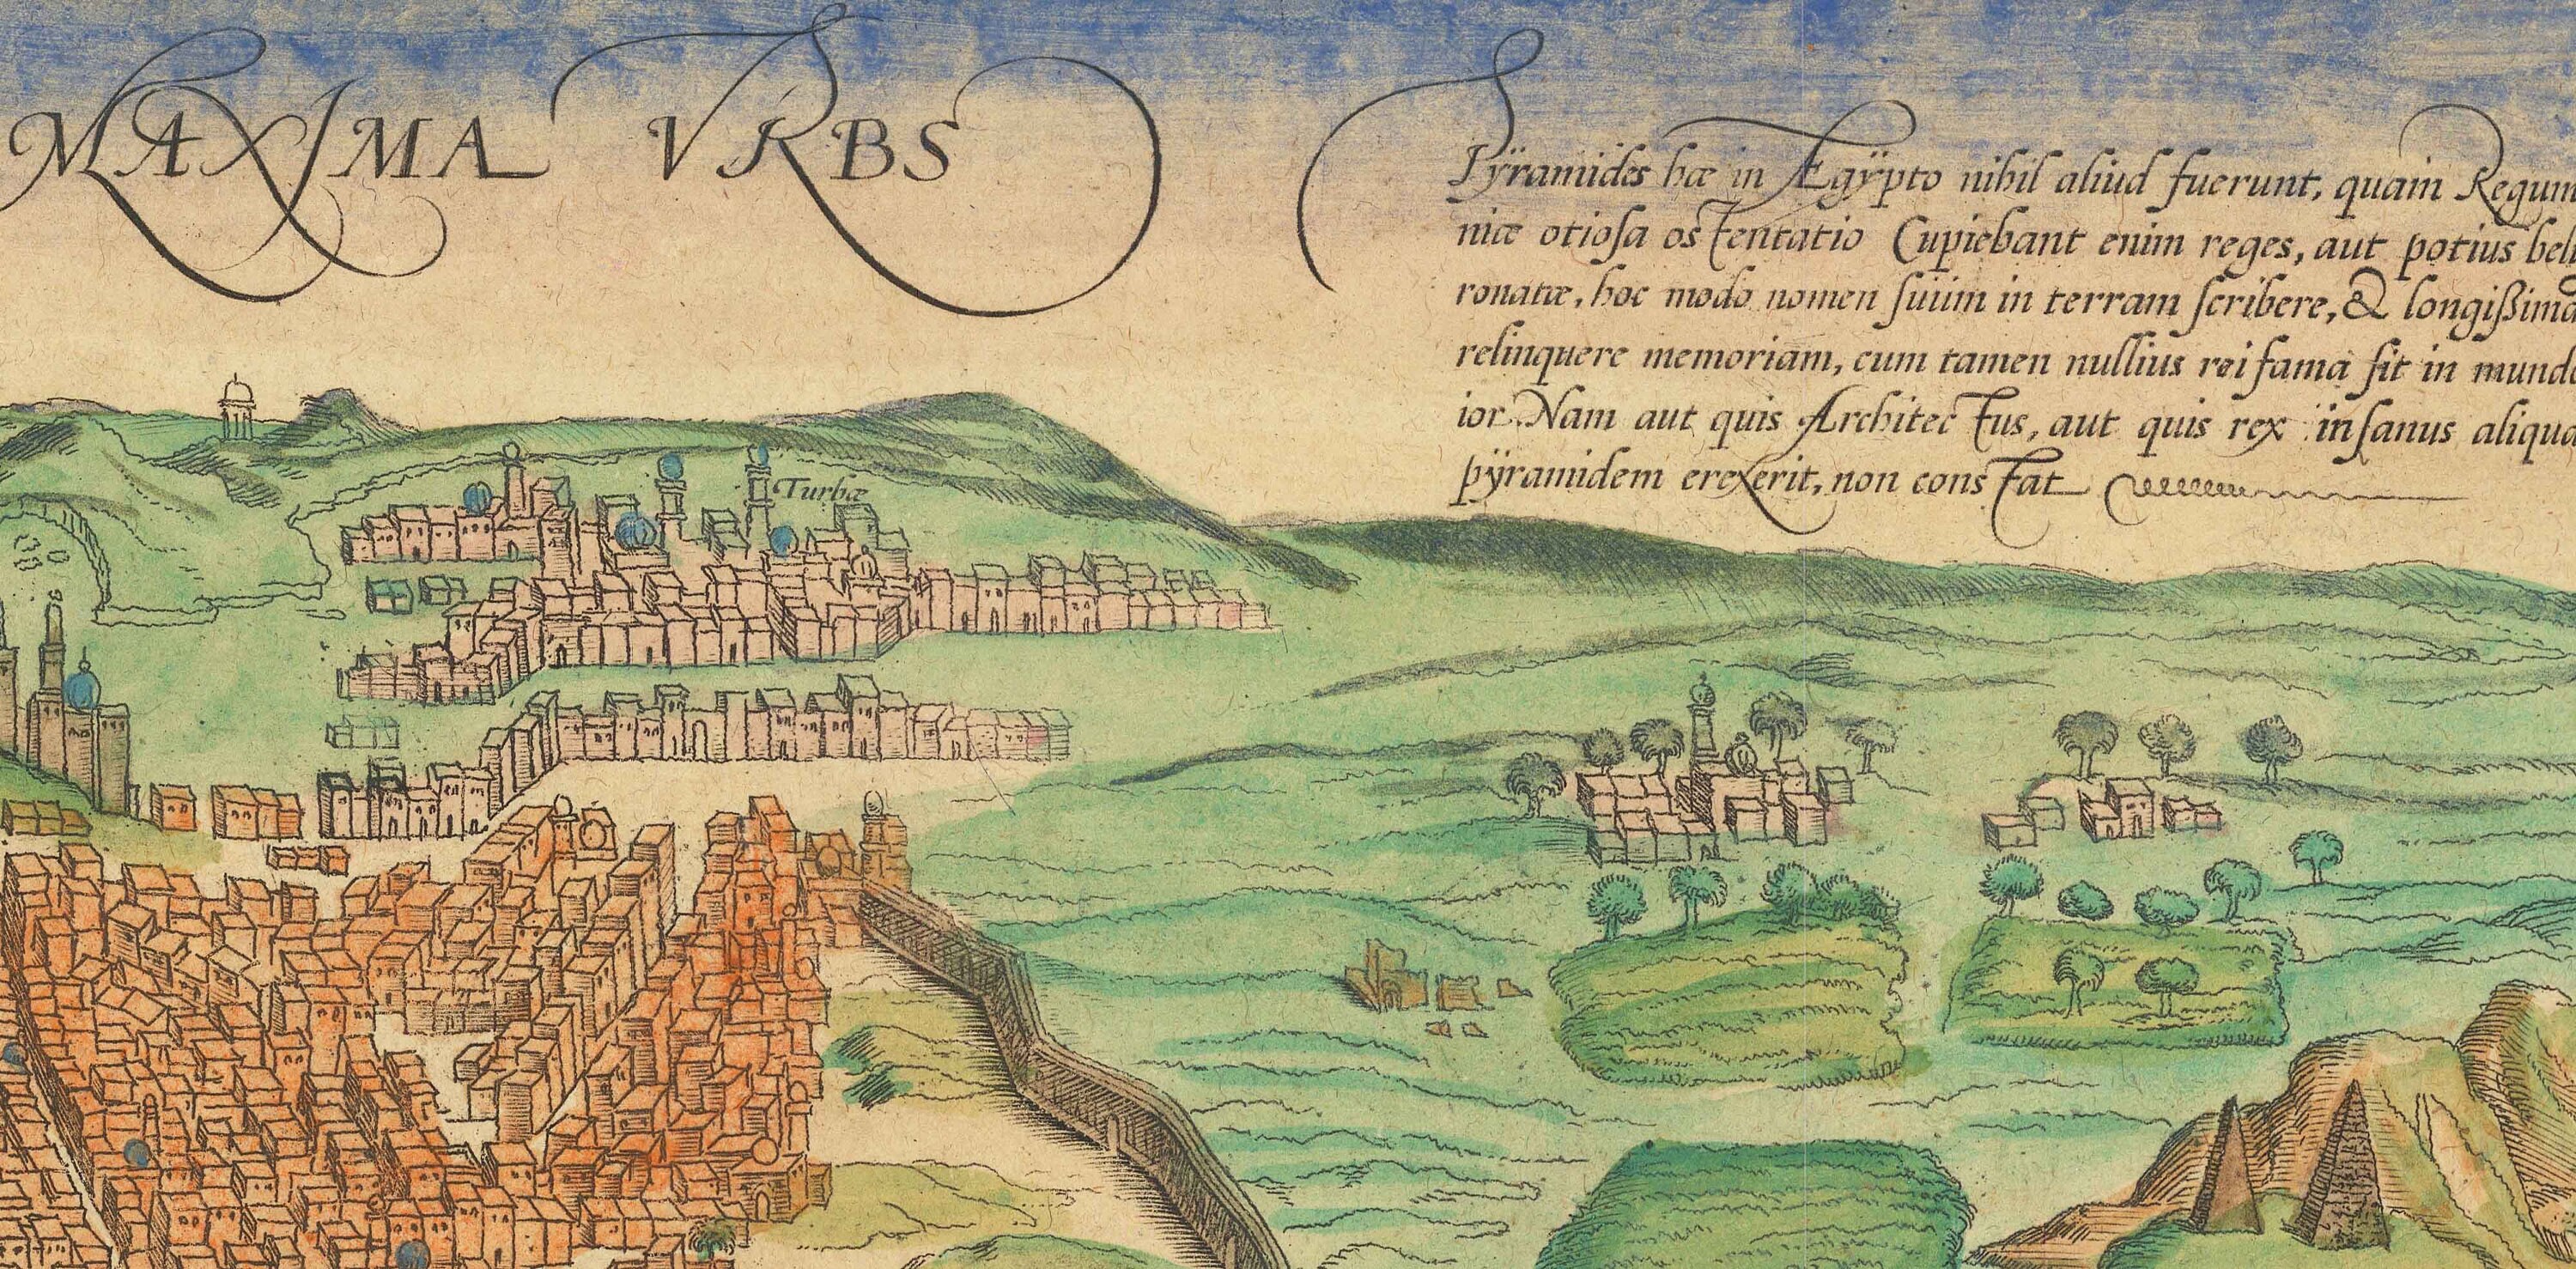 MAXIMA VRBS
Pÿramides hæ in Ægÿpto nihil aliud fuerunt, quam Regum
niæ otiosa ostentatio Cupiebant enim reges, aut potius bel
ronatæ, hoc modo nomen suum in terram scribere, & longißima
relinquere memoriam, cum tamen nullius rei fama sit in mund
ior. Nam aut quis Architectus, aut quis rex insanus aliqua
pÿramidem erexerit, non constat
Turbæ